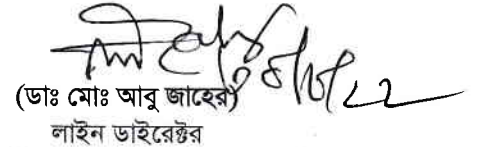 (ডাঃ মোঃ আবু জাহের)
লাইন ডাইরেক্টর